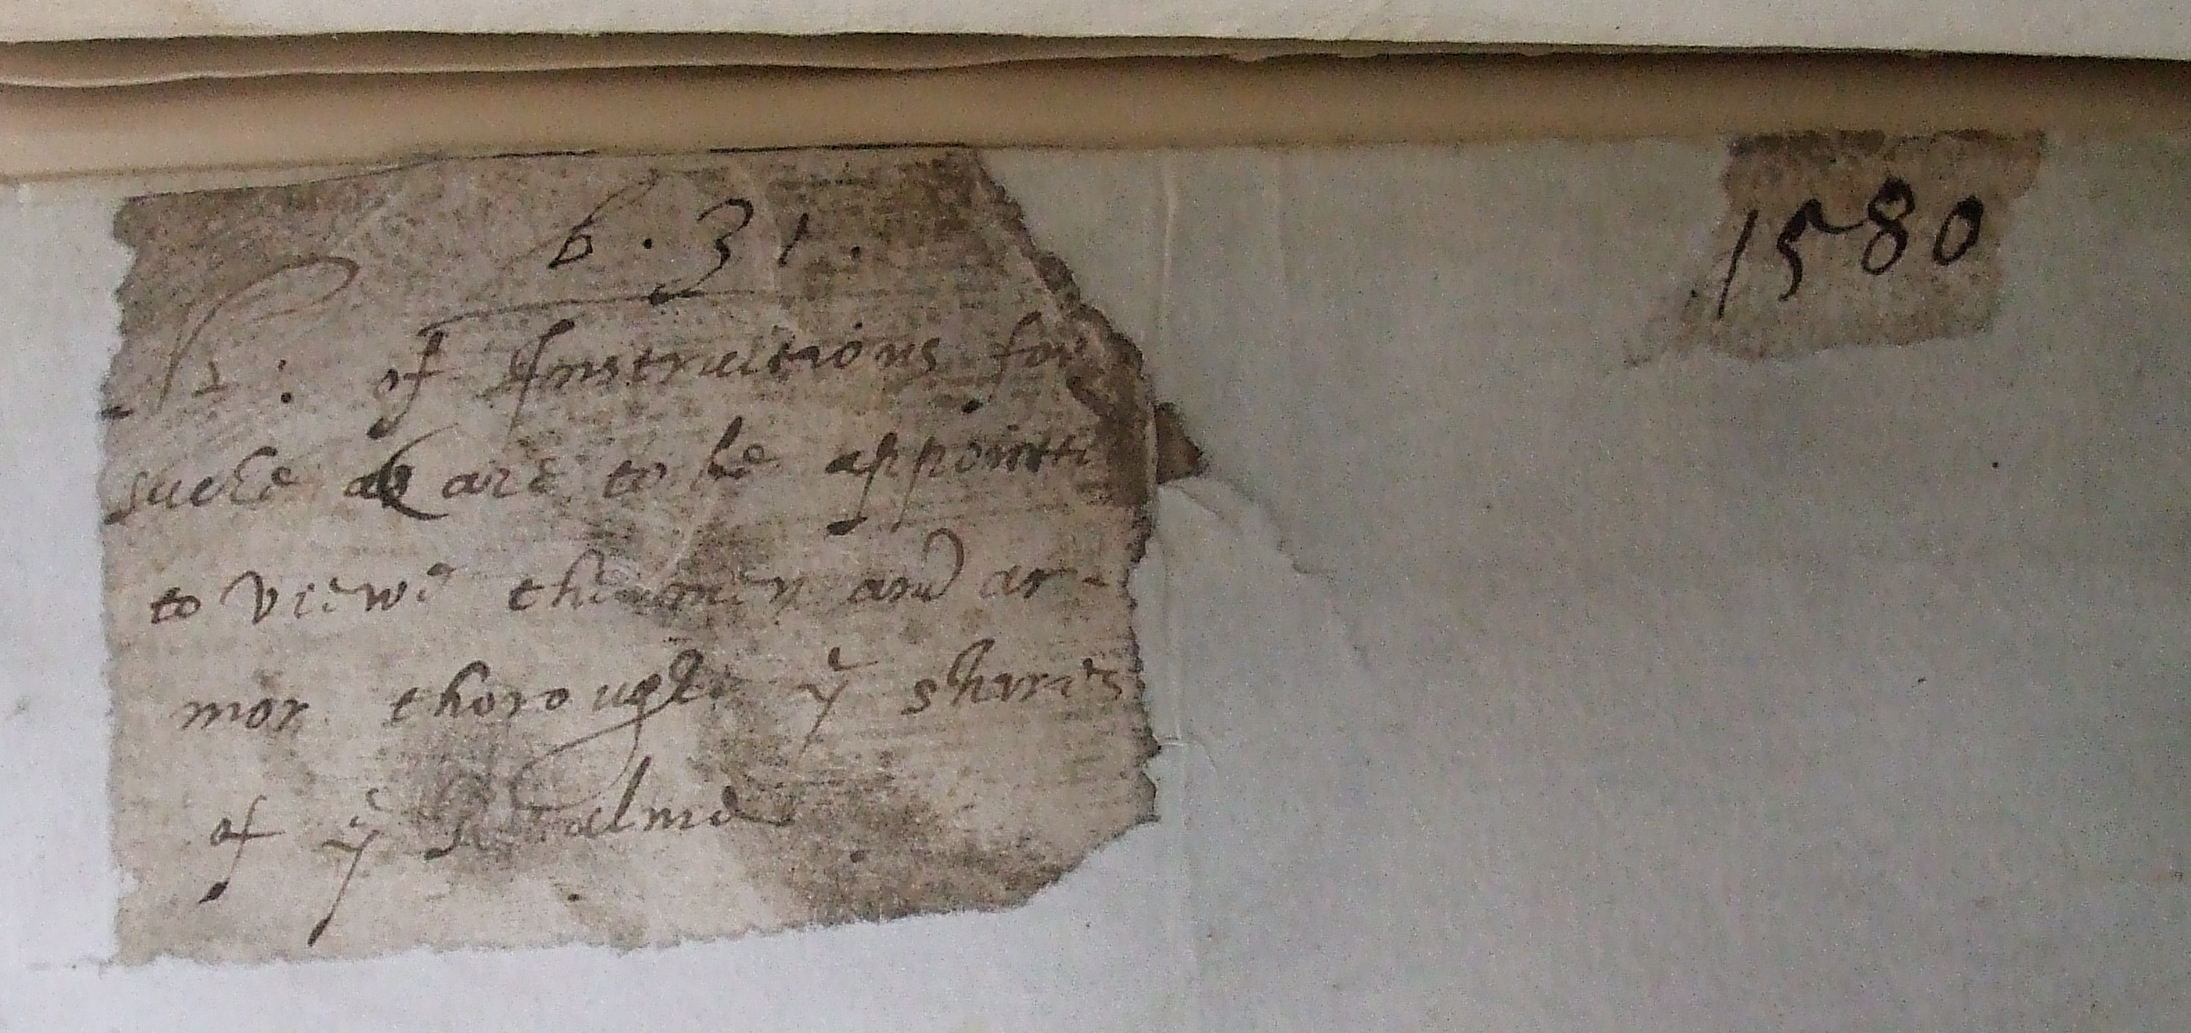 b . 31 .
1580
: of Instructions for
suche as are to be appointe
to viewe the men and ar-
mor thoroughe yͤ shires
of yͤ Realme